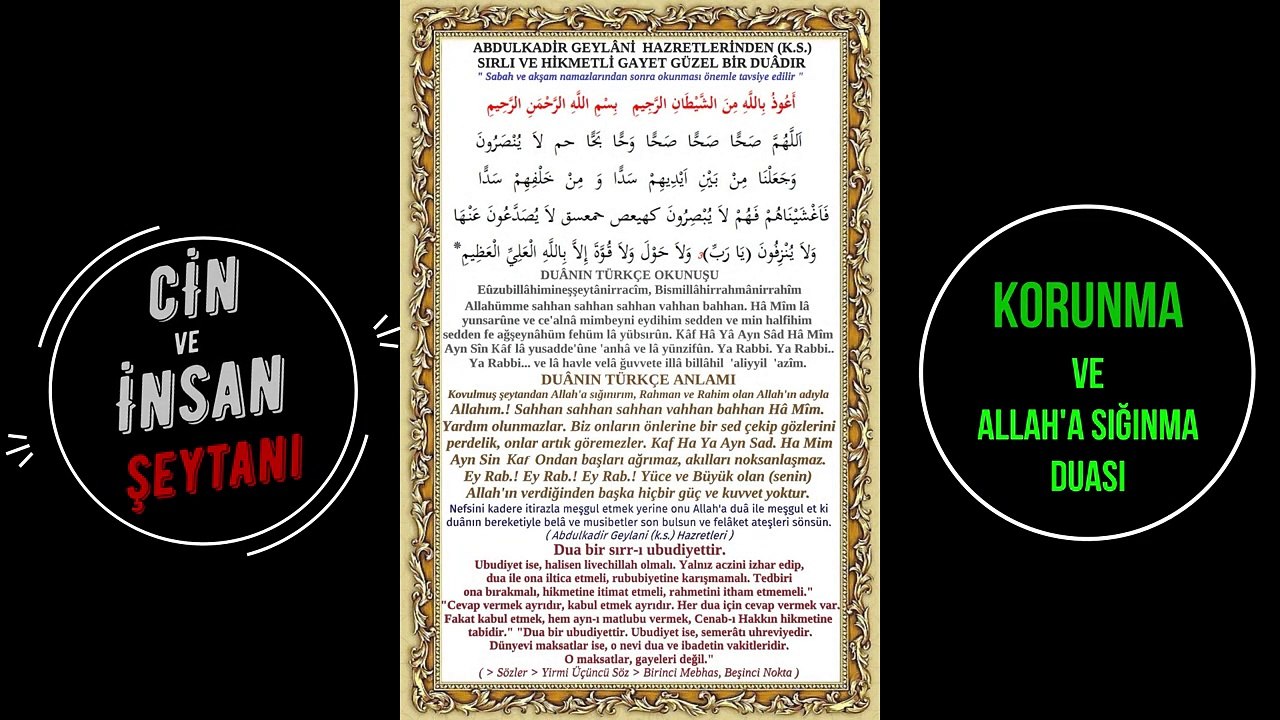 CİN
VE
İNSAN
ŞEYTANI
ABDULKADİR GEYLÂNİ HAZRETLERİNDEN (K.S.)
SIRLI VE HİKMETLİ GAYET GÜZEL BİR DUÂDIR
" Sabah ve akşam namazlarından sonra okunması önemle tavsiye edilir "
أَعُوذُ بِاللَّهِ مِنَ الشَّيْطَانِ الرَّجِيمِ بِسْمِ اللَّهِ الرَّحْمَنِ الرَّحِيمِ
اَللَّهُمَّ صَحًّا صَحًّا صَحًّا وَحًّا بَحًّا حم لاَ يُنْصَرُونَ
وَجَعَلْنَا مِنْ بَيْنِ اَيْدِيهِمْ سَدًّا وَ مِنْ خَلْفِهِمْ سَدًّا
فَاَغْشَيْنَاهُمْ فَهُمْ لاَ يُبْصِرُونَ كهيعص حمعسق لاَ يُصَدَّعُونَ عَنْهَا
وَلاَ يُنْزِفُونَ (يَا رَبِّ)3 وَلاَ حَوْلَ وَلاَ قُوَّةَ إِلاَّ بِاللَّهِ الْعَلِيِّ الْعَظِيمِ*
DUÂNIN TÜRKÇE OKUNUŞU
Eûzubillâhimineşşeytânirracîm, Bismillâhirrahmânirrahîm
Allahümme sahhan sahhan sahhan vahhan bahhan. Hâ Mîm lâ
yunsarûne ve ce'alnâ mimbeyni eydihim sedden ve min halfihim
sedden fe ağşeynâhüm fehüm lâ yübsırûn. Kâf Hâ Yâ Ayn Sâd Hâ Mîm
Ayn Sîn Kâf lâ yusadde'ûne 'anhâ ve lâ yünzifûn. Ya Rabbi. Ya Rabbi..
Ya Rabbi... ve lâ havle velâ ğuvvete illâ billâhil 'aliyyil 'azîm.
DUÂNIN TÜRKÇE ANLAMI
Kovulmuş şeytandan Allah'a sığınırım, Rahman ve Rahim olan Allah'ın adıyla
Allahım.! Sahhan sahhan sahhan vahhan bahhan Hâ Mîm.
Yardım olunmazlar. Biz onların önlerine bir sed çekip gözlerini
perdelik, onlar artık göremezler. Kaf Ha Ya Ayn Sad. Ha Mim
Ayn Sin Kaf Ondan başları ağrımaz, akılları noksanlaşmaz.
Ey Rab.! Ey Rab.! Ey Rab.! Yüce ve Büyük olan (senin)
Allah'ın verdiğinden başka hiçbir güç ve kuvvet yoktur.
Nefsini kadere itirazla meşgul etmek yerine onu Allah'a duâ ile meşgul et ki
duânın bereketiyle belâ ve musibetler son bulsun ve felâket ateşleri sönsün.
( Abdulkadir Geylani (k.s.) Hazretleri )
Dua bir sırr-ı ubudiyettir.
Ubudiyet ise, halisen livechillah olmalı. Yalnız aczini izhar edip,
dua ile ona iltica etmeli, rububiyetine karışmamalı. Tedbiri
ona bırakmalı, hikmetine itimat etmeli, rahmetini itham etmemeli."
"Cevap vermek ayrıdır, kabul etmek ayrıdır. Her dua için cevap vermek var.
Fakat kabul etmek, hem ayn-ı matlubu vermek, Cenab-ı Hakkın hikmetine
tabidir." "Dua bir ubudiyettir. Ubudiyet ise, semerâtı uhreviyedir.
Dünyevi maksatlar ise, o nevi dua ve ibadetin vakitleridir.
O maksatlar, gayeleri değil."
( > Sözler > Yirmi Üçüncü Söz > Birinci Mebhas, Beşinci Nokta )
KORUNMA
VE
ALLAH'A SIĞINMA
DUASI